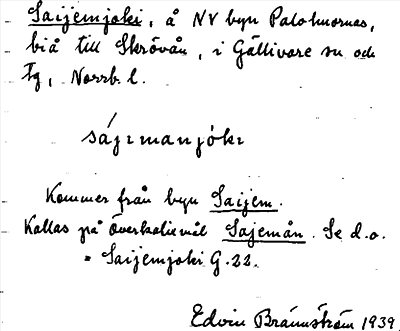 Saijemjoki, å NV byn Palohuornas,
biå till Skrövån, i Gällivare sn och
tg, Norrb. l.
sájεmanjòkι
Kommer från byn Saijem.
Kallas på Överkalixmål Sajemån. Se d.o.
= Saijemjoki G.22.
Edvin Brännström 1939